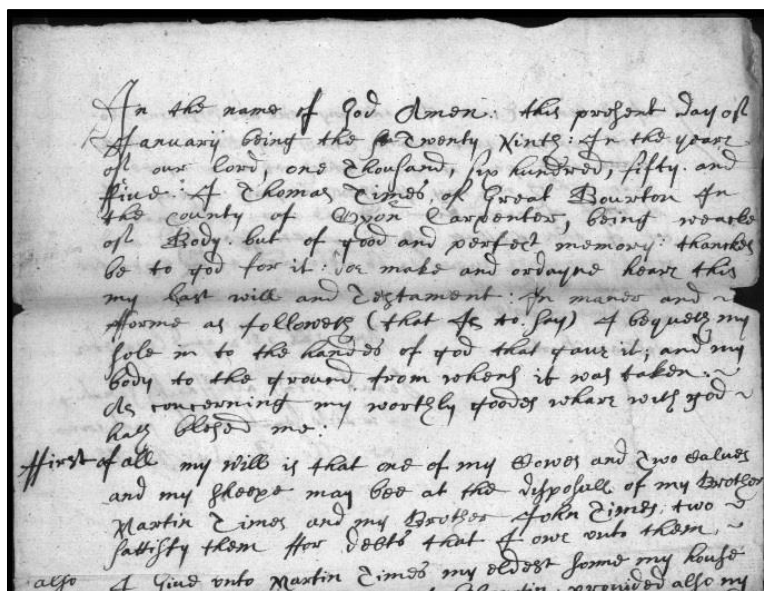 In the name of God Amen: this present day of
January being the Twenty Ninth: In the yeare
of our lord, one Thousand, six hundred, fifty and
ffive: I Thomas Times, of Great Bourton In
the County of Oxon Carpenter, being weacke
of Body. but of good and perfect memory: thanckes
be to god for it: doe make and ordayne heare this
my last will and Testament: In maner and
fforme as followeth (that Is to say) I bequeth my
sole in to the handes of god that gave it; and my
body to the ground from whens it was taken:
As concerning my worthly goodes whare with god
hath blesed me:
ffirst of all my will is that one of my Cowes and Two Calves
and my sheepe may bee at the disposall of my Brother
Martin Times and my Brother John Times: two
sattisfy them ffor debts that I owe unto them
also I Give unto Martin Times my eldest sonne my house
Martin: provided also my